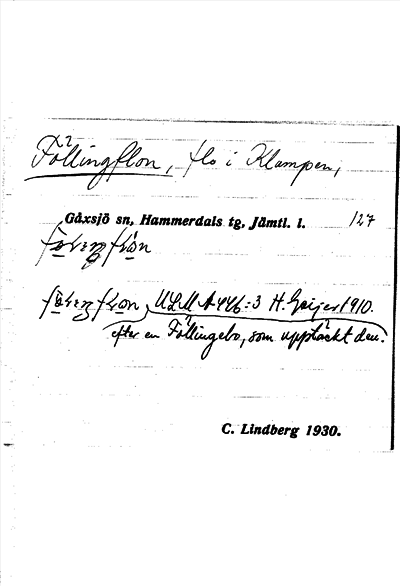 Föllingflon, flo i Klampen,
Gåxsjö sn, Hammerdals tg, Jämtl. l. 127
ULMA 446:3 H. Geijer 1910.
efter en Föllingebo, som upptäckt den.
C. Lindberg 1930.